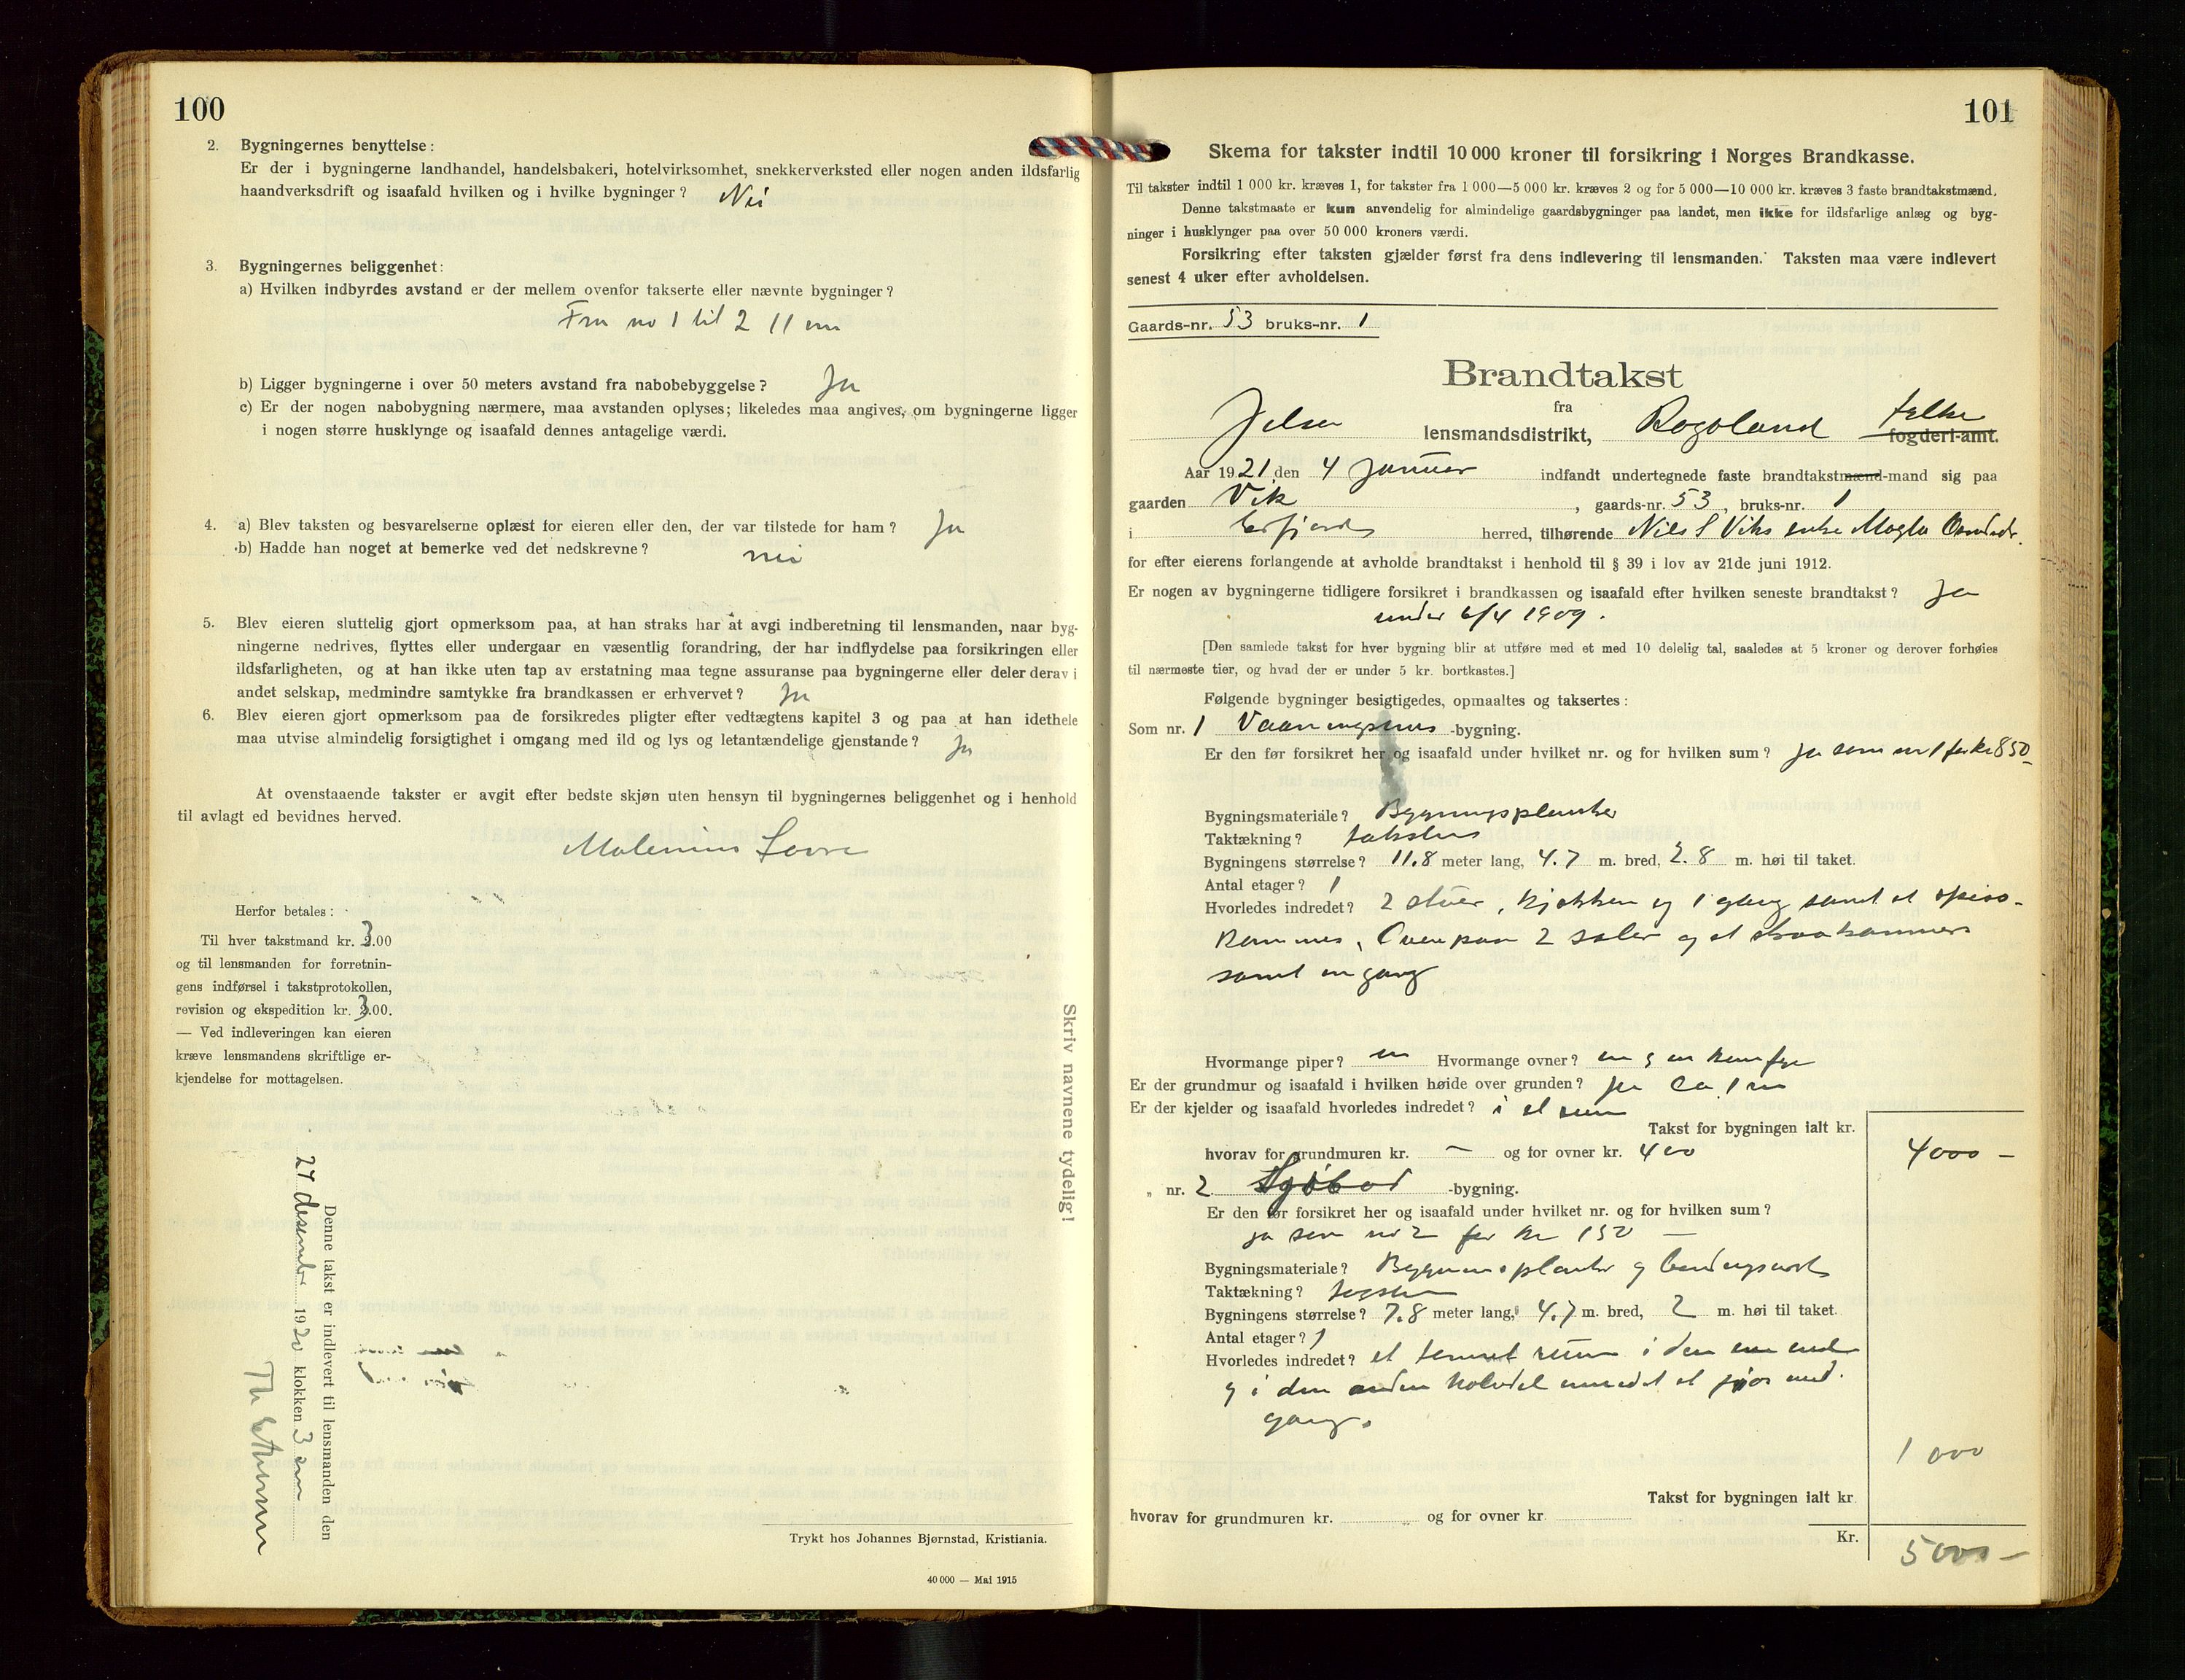 100
2. Bygningernes benyttelse:
Er der i bygningerne landhandel, handelsbakeri, hotelvirksomhet, snekkerverksted eller nogen anden ildsfarlig
haandverksdrift og isaafald hvilken og i hvilke bygninger? Nei
3. Bygningernes beliggenhet:
a) Hvilken indbyrdes avstand er der mellem ovenfor takserte eller nævnte bygninger?
Fra no 1 til 2 11 m
b) Ligger bygningerne i over 50 meters avstand fra nabobebyggelse? Ja
c) Er der nogen nabobygning nærmere, maa avstanden oplyses; likeledes maa angives, om bygningerne ligger
i nogen større husklynge og isaafald dennes antagelige værdi.
4. a) Blev taksten og besvarelserne oplæst for eieren eller den, der var tilstede for ham? Ja
b) Hadde han noget at bemerke ved det nedskrevne? nei
5. Blev eieren sluttelig gjort opmerksom paa, at han straks har at avgi indberetning til lensmanden, naar byg-
ningerne nedrives, flyttes eller undergaar en væsentlig forandring, der har indflydelse paa forsikringen eller
ildsfarligheten, og at han ikke uten tap av erstatning maa tegne assuranse paa bygningerne eller deler derav i
andet selskap, medmindre samtykke fra brandkassen er erhvervet? Ja
6. Blev eieren gjort opmerksom paa de forsikredes pligter efter vedtægtens kapitel 3 og paa at han idethele
maa utvise almindelig forsigtighet i omgang med ild og lys og letantændelige gjenstande? Ja
At ovenstaaende takster er avgit efter bedste skjøn uten hensyn til bygningernes beliggenhet og i henhold
til avlagt ed bevidnes herved.
Malenius Lovra
Herfor betales:
Til hver takstmand kr. 3.00
og til lensmanden for forretnin-
gens indførsel i takstprotokollen,
revision og ekspedition kr. 3.00.
— Ved indleveringen kan eieren
kræve lensmandens skriftlige er-
kjendelse for mottagelsen.
Skriv navnene tydelig!
Denne takst er indlevert til lensmanden den
27 desember 1920 klokken 3 em
Trykt hos Johannes Bjørnstad, Kristiania.
40 000 — Mai 1915
101
Skema for takster indtil 10 000 kroner til forsikring i Norges Brandkasse.
Til takster indtil 1 000 kr. kræves 1, for takster fra 1 000—5 000 kr. kræves 2 og for 5 000—10 000 kr. kræves 3 faste brandtakstmænd.
Denne takstmaate er kun anvendelig for almindelige gaardsbygninger paa landet, men ikke for ildsfarlige anlæg og byg-
ninger i husklynger paa over 50 000 kroners værdi.
Forsikring efter taksten gjælder først fra dens indlevering til lensmanden. Taksten maa være indlevert
senest 4 uker efter avholdelsen.
Gaards-nr. 53 bruks-nr. 1
Brandtakst
fra
Jelsa lensmandsdistrikt, Rogoland fylke fogderi-amt.
Aar 1921 den 4 januar indfandt undertegnede faste brandtakstmænd-mand sig paa
gaarden Vik, gaards-nr. 53, bruks-nr. 1
i Erfjord herred, tilhørende Nils S Viks enke Magla
for efter eierens forlangende at avholde brandtakst i henhold til § 39 i lov av 21de juni 1912.
Er nogen av bygningerne tidligere forsikret i brandkassen og isaafald efter hvilken seneste brandtakst? Ja
under 6/4 1909.
[Den samlede takst for hver bygning blir at utføre med et med 10 delelig tal, saaledes at 5 kroner og derover forhøies
til nærmeste tier, og hvad der er under 5 kr. bortkastes.]
Følgende bygninger besigtigedes, opmaaltes og taksertes:
Som nr. 1 Vaaningshus -bygning.
Er den før forsikret her og isaafald under hvilket nr. og for hvilken sum? Ja som nr 1 for kr 850-
Bygningsmateriale? Bygningsplanker
Taktækning? taksten
Bygningens størrelse? 11.8 meter lang, 4.7 m. bred, 2.8 m. høi til taket.
Antal etager? 1
Hvorledes indredet? 2 stuer, kjøkken og 1 gang samt et spis-
kammer, Ovenpaa 2 saler og et kammers
samt en gang
Hvormange piper? en Hvormange ovner? en og en komfyr
Er der grundmur og isaafald i hvilken høide over grunden? ja ca. 1 m
Er der kjelder og isaafald hvorledes indredet? i et rum
Takst for bygningen ialt kr.
hvorav for grundmuren kr. — og for ovner kr. 400 4000 —
„ nr. 2 Sjøbod -bygning.
Er den før forsikret her og isaafald under hvilket nr. og for hvilken sum?
ja som no 2 for kr 150 —
Bygningsmateriale? Bygningsplanker og bindingsverk
Taktækning? tegsten
Bygningens størrelse? 7.8 meter lang, 4.7 m. bred, 2 m. høi til taket.
Antal etager? 1
Hvorledes indredet? et tømret rum i den ene ende
og i den anden halvdel innredet et med
gang.
1000
Takst for bygningen ialt kr.
hvorav for grundmuren kr. og for ovner kr.
Kr. 5000 —